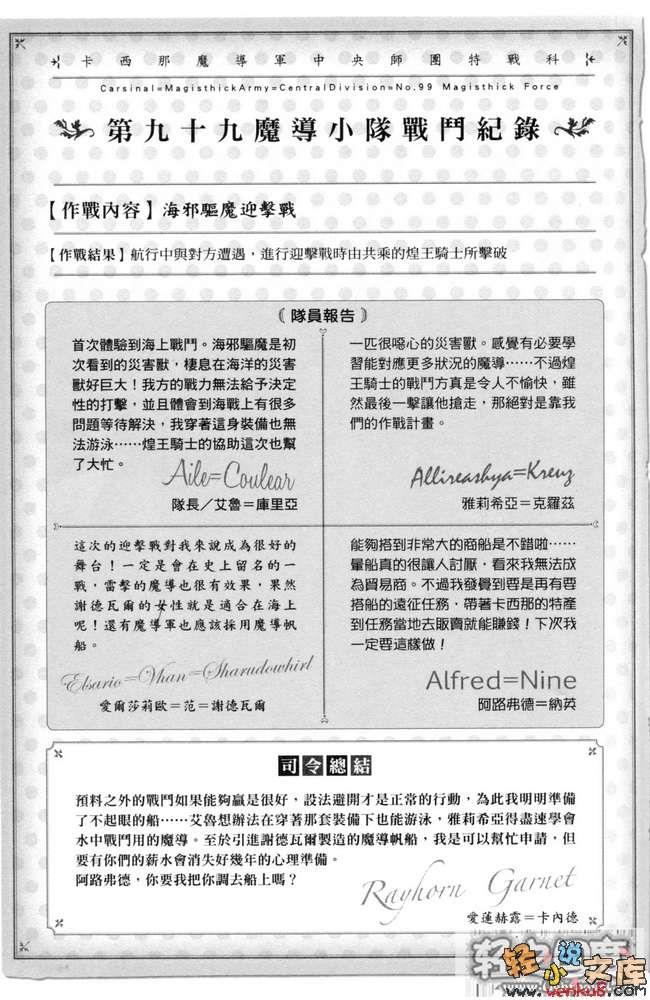 卡西那魔導軍中央師團特戰科
Carsinal=MagisthickArmy=CentralDivision=No.99 Magisthick Force
第九十九魔導小隊戰鬥紀錄
【作戰內容】海邪驅魔迎擊戰
【作戰結果】航行中與對方遭遇，進行迎擊戰時由共乘的煌王騎士所擊破
《隊員報告》
首次體驗到海上戰鬥。海邪驅魔是初
次看到的災害獸，棲息在海洋的災害
獸好巨大！我方的戰力無法給予決定
性的打擊，並且體會到海戰上有很多
問題等待解決，我穿著這身裝備也無
法游泳……煌王騎士的協助這次也幫
了大忙。
Aile=Coulear
隊長／艾魯＝庫里亞
一匹很噁心的災害獸。感覺有必要學
習能對應更多狀況的魔導……不過煌
王騎士的戰鬥方真是令人不愉快，雖
然最後一擊讓他搶走，那絕對是靠我
們的作戰計畫。
Allireashya=Kreuz
雅莉希亞＝克羅茲
這次的迎擊戰對我來說成為很好的
舞台！一定是會在史上留名的一
戰，雷擊的魔導也很有效果，果然
謝德瓦爾的女性就是適合在海上
呢！還有魔導軍也應該採用魔導帆
船。
Elsario=Vhan=Sharudowhirl
愛爾莎莉歐＝范＝謝德瓦爾
能夠搭到非常大的商船是不錯啦……
暈船真的很讓人討厭，看來我無法成
為貿易商。不過我發覺到要是再有要
搭船的遠征任務，帶著卡西那的特產
到任務當地去販賣就能賺錢！下次我
一定要這樣做！
Alfred=Nine
阿路弗德＝納英
司令總結
預料之外的戰鬥如果能夠贏是很好，設法避開才是正常的行動，為此我明明準備
了不起眼的船……艾魯想辦法在穿著那套裝備下也能游泳，雅莉希亞得盡速學會
水中戰鬥用的魔導。至於引進謝德瓦爾製造的魔導帆船，我是可以幫忙申請，但
要有你們的薪水會消失好幾年的心理準備。
阿路弗德，你要我把你調去船上嗎？
Rayhorn Garnet
愛蓮赫露＝卡內德
轻之国度
轻小说文库
www.wenku8.com